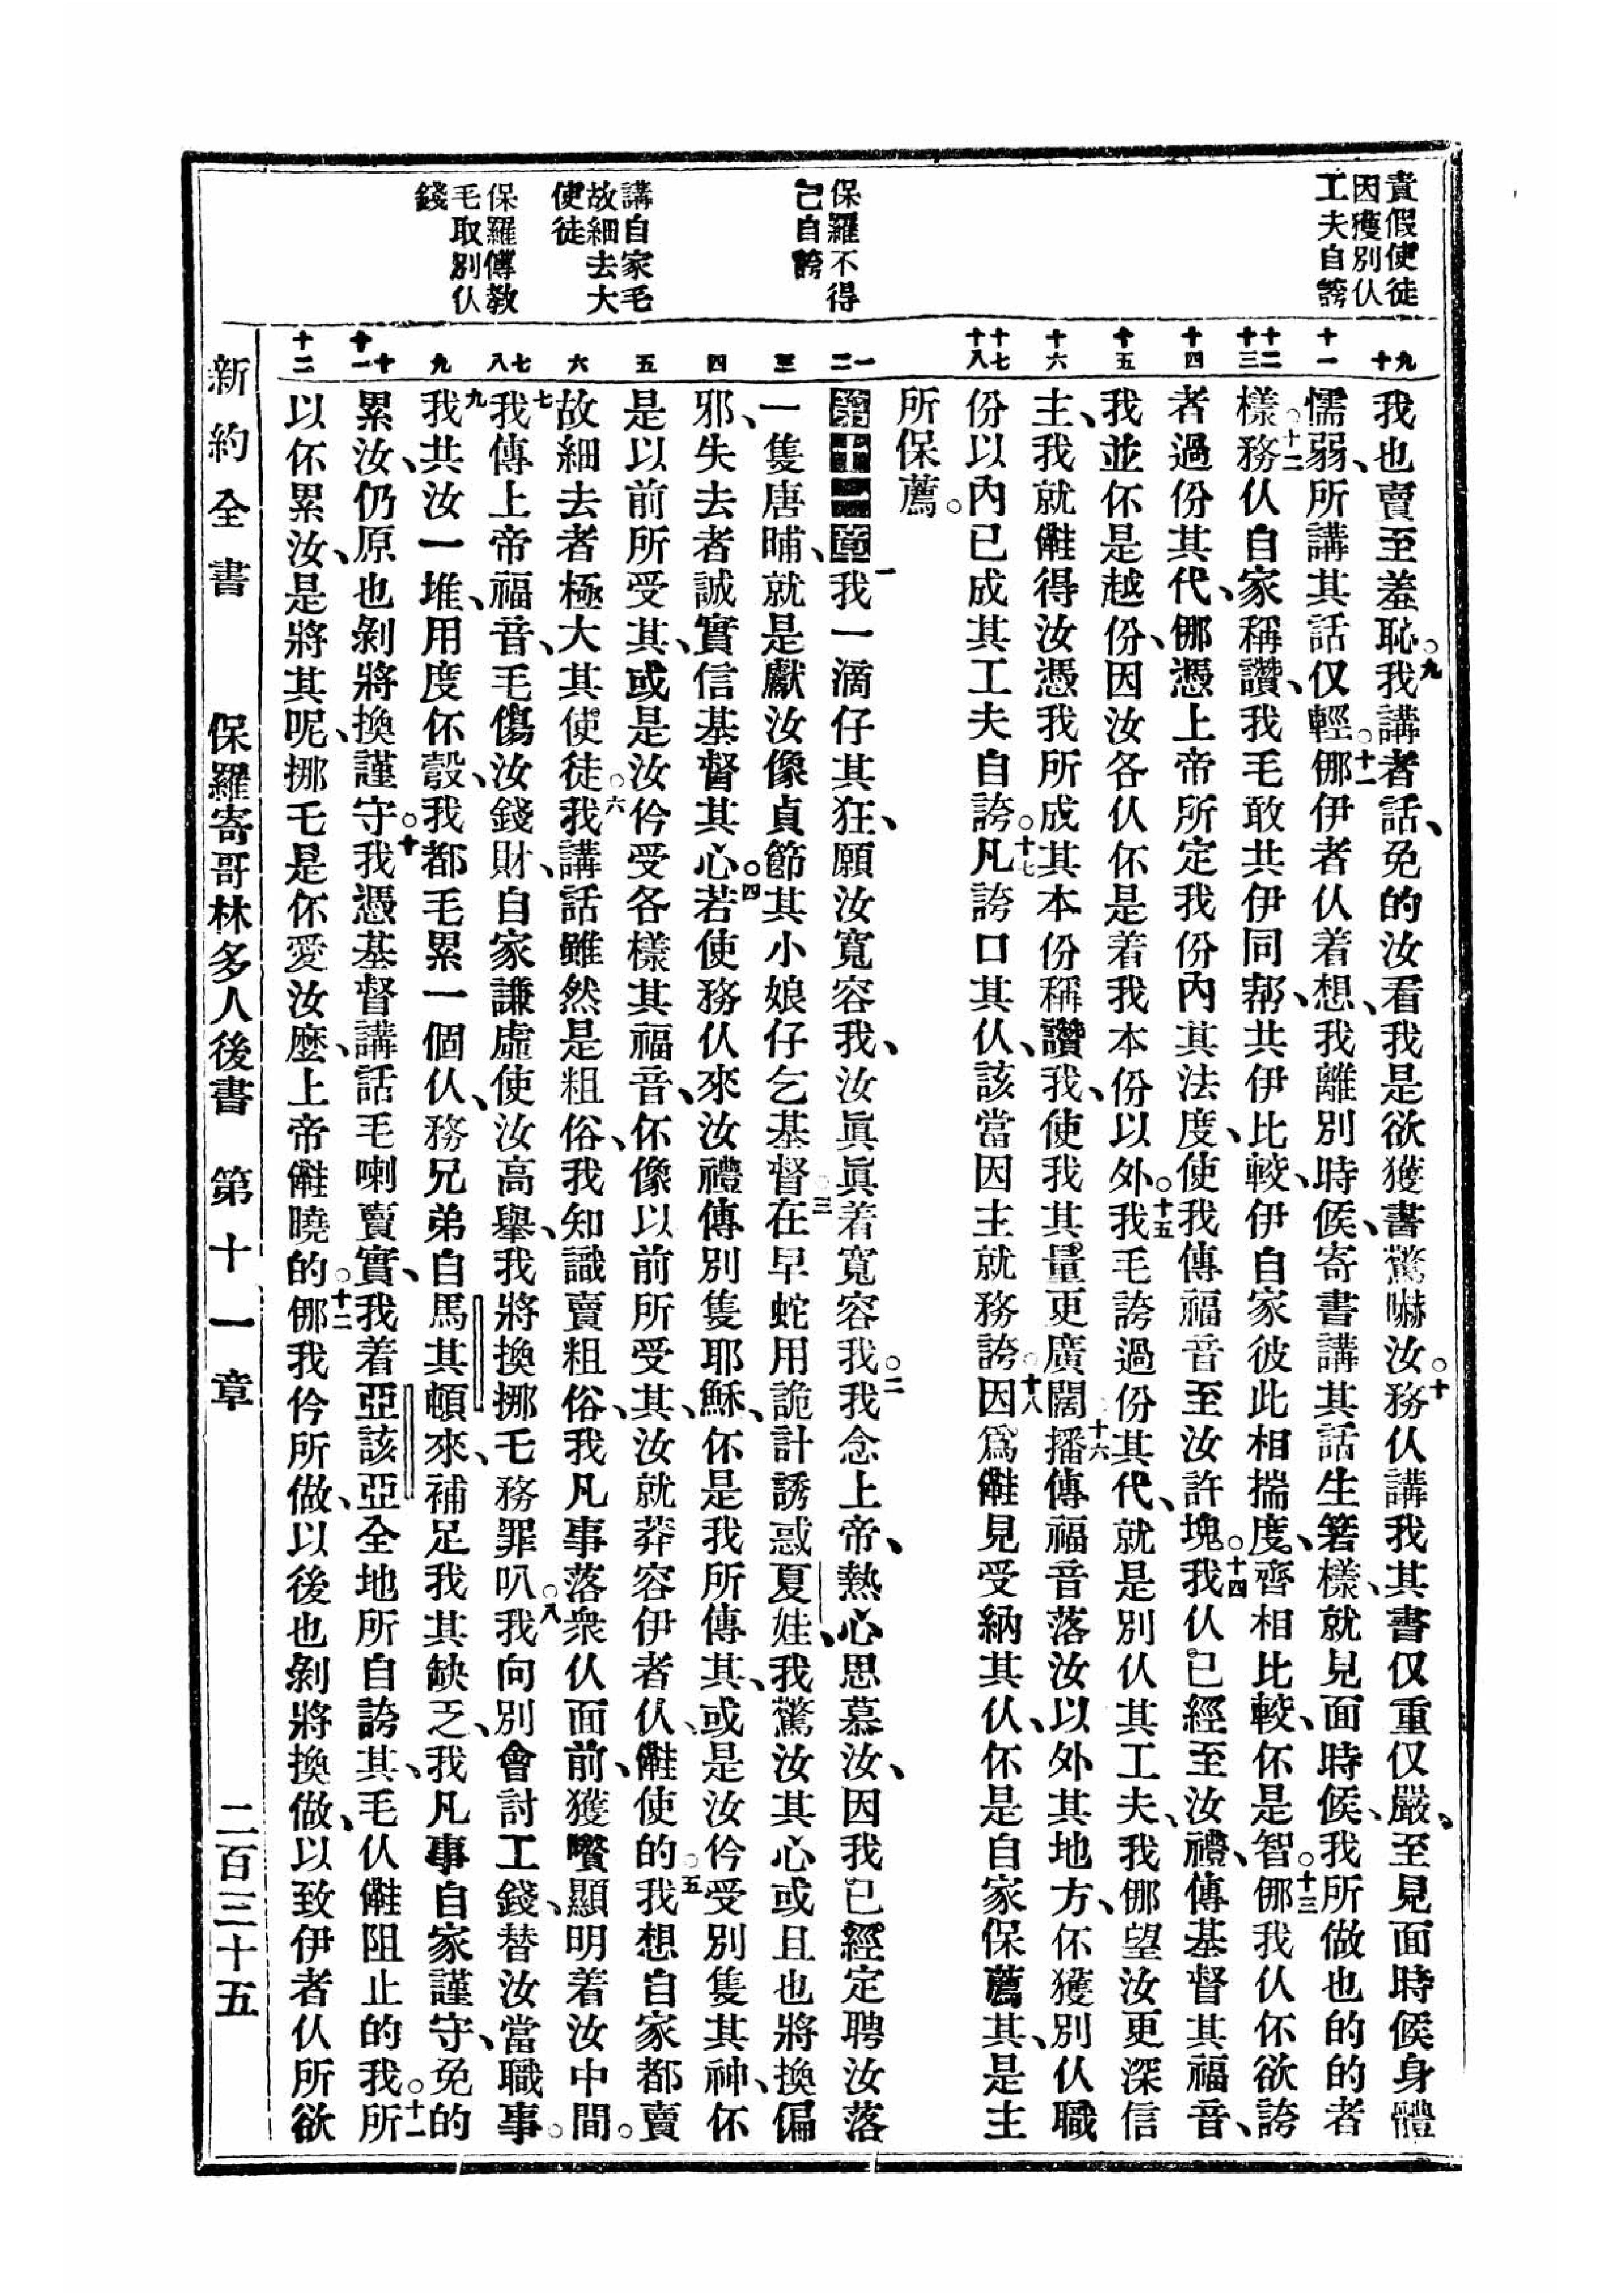 責假使徒
因獲別仫
工夫自誇
保羅不得
已自誇
講自家毛
故細去大
使徒
保羅傳教
毛取別仫
錢
九
十
十一
十二
十三
十四
十五
十六
十七
十八
一
二
三
四
五
六
七
八
九
十
十一
十二
我也賣至羞恥。九我講者話、免的汝看我是欲獲書驚嚇汝。十務仫講我其書仅重仅嚴、至見面時候身體
懦弱、所講其話仅輕。十一㑚伊者仫着想、我離別時候、寄書講其話生箬樣、就見面時候、我所做也的的者
樣。十二務仫自家稱讚、我毛敢共伊同帮、共伊比較、伊自家彼此相揣度、齊相比較、伓是智。十三㑚我仫伓欲誇
者過份其代、㑚憑上帝所定我份內其法度、使我傳福音至汝許塊。十四我仫已經至汝禮、傳基督其福音、
我並伓是越份、因汝各仫伓是着我本份以外。十五我毛誇過份其代、就是別仫其工夫、我㑚望汝更深信
主、我就𠆧得汝憑我所成其本份稱讚我、使我其量更廣闊。十六播傳福音落汝以外其地方、伓獲別仫職
份以內已成其工夫自誇。十七凡誇口其仫、該當因主就務誇。十八因爲𠆧見受納其仫、伓是自家保薦其、是主
所保薦。
第十一章一我一滴仔其狂、願汝寬容我、汝眞眞着寬容我。二我念上帝、熱心思慕汝、因我已經定聘汝落
一隻唐晡、就是獻汝像貞節其小娘仔乞基督。三在早蛇用詭計誘惑夏娃、我驚汝其心或且也將換偏
邪、失去者誠實信基督其心。四若使務仫來汝禮傳別隻耶穌、伓是我所傳其、或是汝仱受別隻其神、伓
是以前所受其、或是汝仱受各樣其福音、伓像以前所受其、汝就莽容伊者仫、𠆧使的。五我想自家都賣
故細去者極大其使徒。六我講話雖然是粗俗、我知識賣粗俗、我凡事落衆仫面前、獲囋顯明着汝中間。
七我傳上帝福音、毛傷汝錢財、自家謙虛使汝高舉、我將換挪乇務罪叭。八我向別會討工錢、替汝當職事。
九我共汝一堆、用度伓彀、我都毛累一個仫、務兄弟自馬其頓來、補足我其缺乏、我凡事自家謹守、免的
累汝、仍原也剝將換謹守。十我憑基督講話毛喇賣實、我着亞該亞全地所自誇其、毛仫𠆧阻止的我。十一我所
以伓累汝、是將其呢、挪乇是伓愛汝麼、上帝𠆧曉的。十二㑚我仱所做、以後也剝將換做、以致伊者仫所欲
新約全書 保羅寄哥林多人後書 第十一章 二百三十五